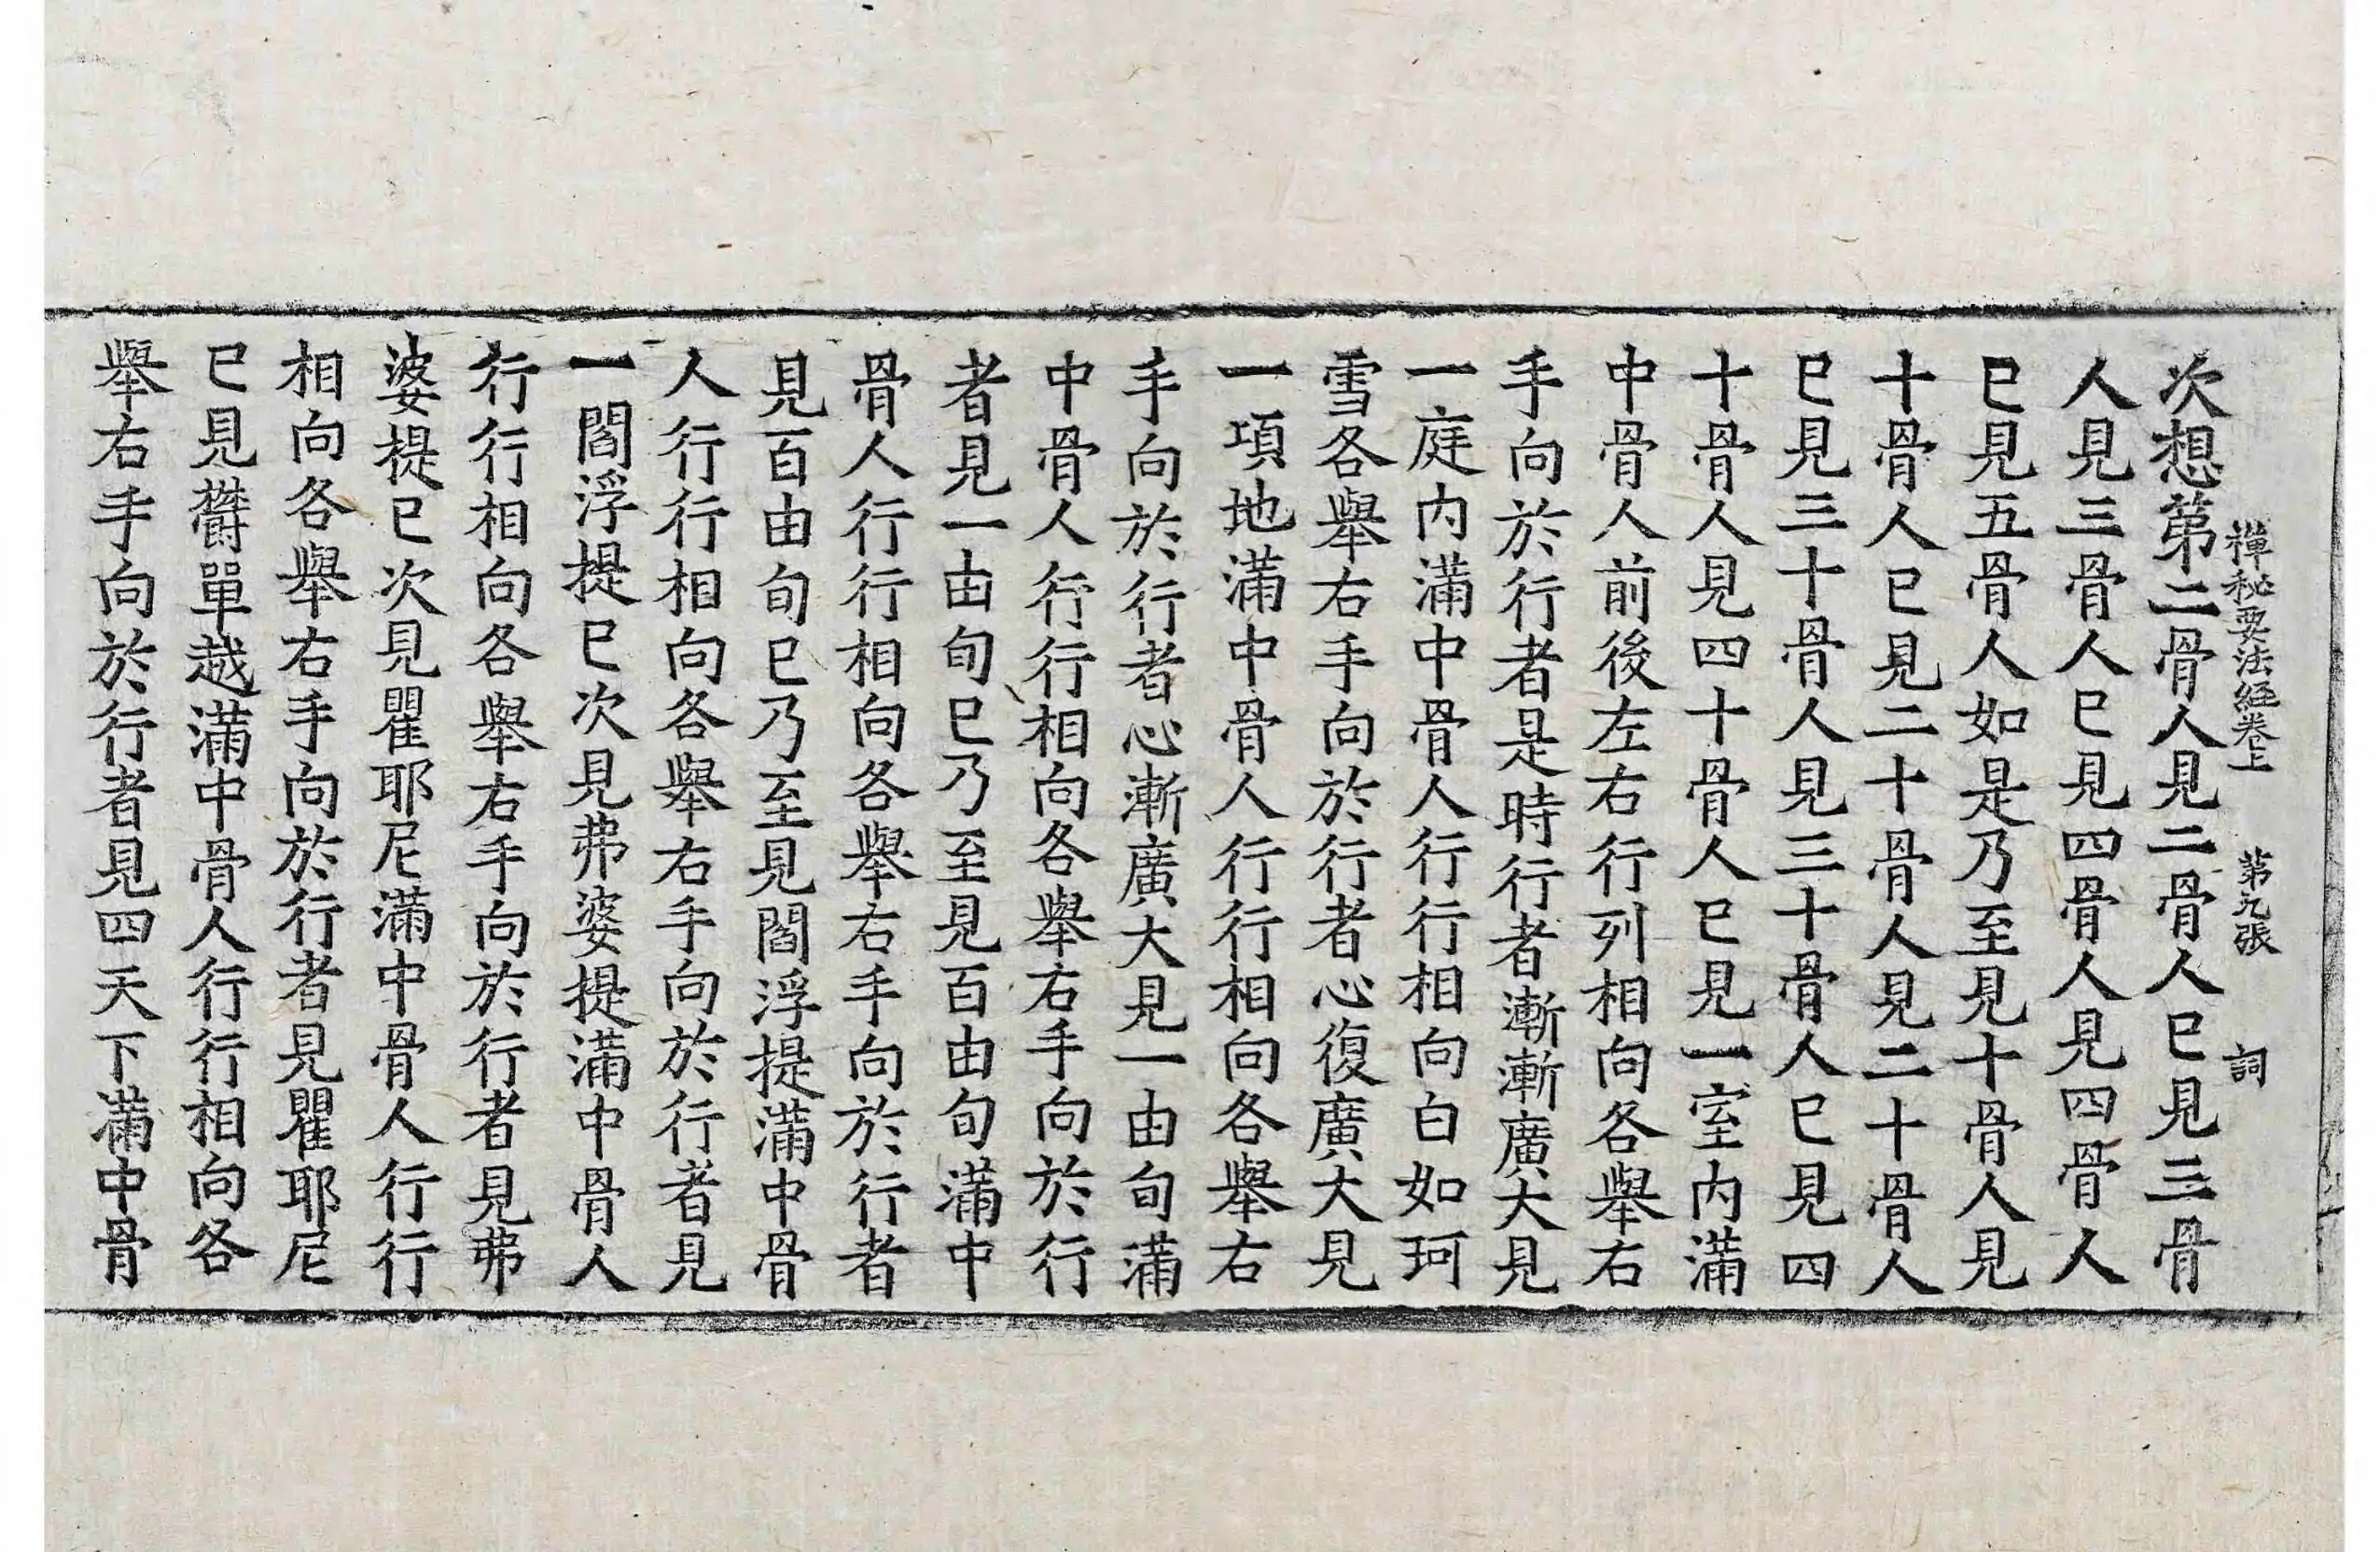 禪秘要法經卷上 第九張 詞
次想第二骨人見二骨人已見三骨
人見三骨人已見四骨人見四骨人
已見五骨人如是乃至見十骨人見
十骨人已見二十骨人見二十骨人
已見三十骨人見三十骨人已見四
十骨人見四十骨人已見一室內滿
中骨人前後左右行列相向各舉右
手向於行者是時行者漸漸廣大見
一庭內滿中骨人行行相向白如珂
雪各舉右手向於行者心復廣大見
一頃地滿中骨人行行相向各舉右
手向於行者心漸廣大見一由旬滿
中骨人行行相向各舉右手向於行
者見一由旬已乃至見百由旬滿中
骨人行行相向各舉右手向於行者
見百由旬已乃至見閻浮提滿中骨
人行行相向各舉右手向於行者見
一閻浮提已次見弗婆提滿中骨人
行行相向各舉右手向於行者見弗
婆提已次見瞿耶尼滿中骨人行行
相向各舉右手向於行者見瞿耶尼
已見欝單越滿中骨人行行相向各
舉右手向於行者見四天下滿中骨